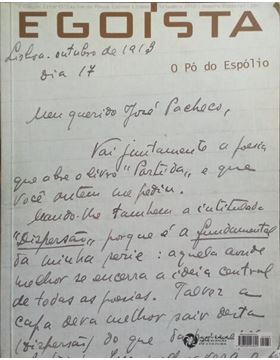 EGOÍSTA
Lisboa - outubro de 1913
Dia 17
O Pó do Espólio
Meu querido José Pacheco,
Vai juntamente a poesia
que abre o livro "Partida", e que
você ontem me pediu.
Mando-lhe tambem a intitulada
"Dispersão" porque é a fundamental
da minha serie: aquela aonde
melhor se encerra a ideia central
de todas as poesias. Talvez a
capa deva melhor sair desta
(Dispersão) do que da